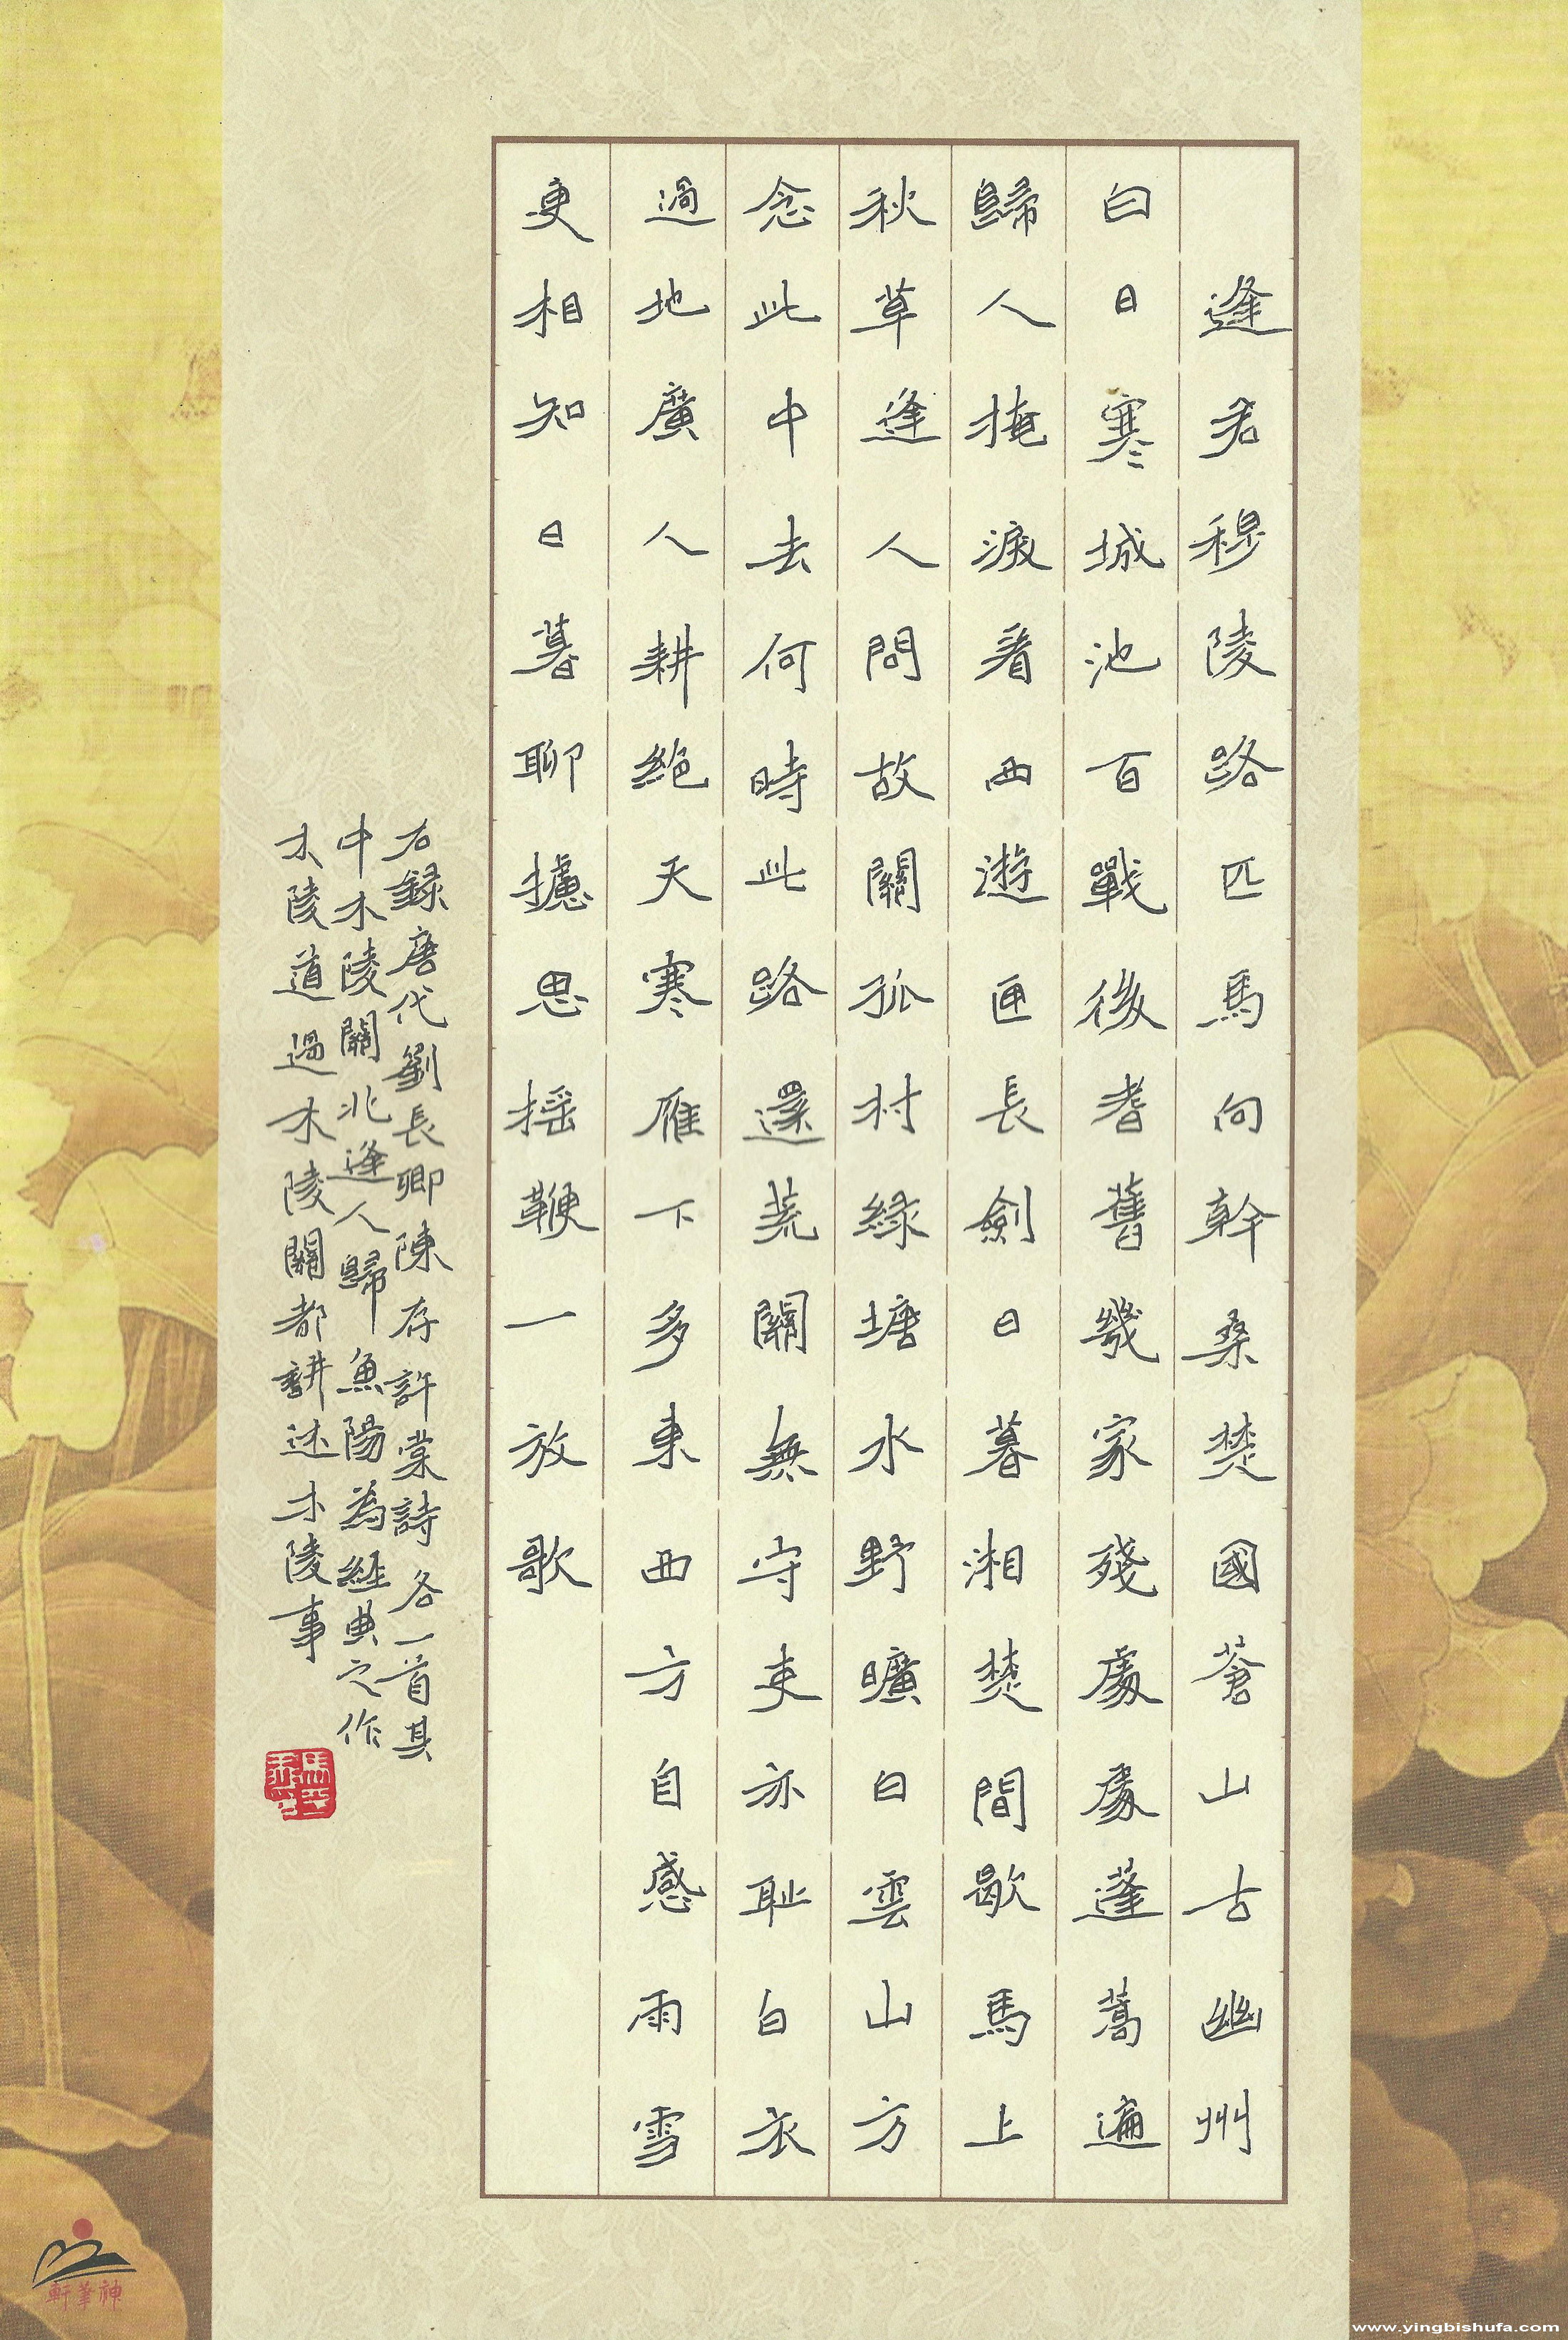 逢君穆陵路匹馬向幹桑楚國蒼山古幽州
白日寒城池百戰後耆舊幾家殘處處蓬蒿遍
歸人掩淚看西遊匣長劍日暮湘楚間歇馬上
秋草逢人問故關孤村綠塘水野曠白雲山方
念此中去何時此路還荒關無守吏亦恥白衣
過地廣人耕絕天寒雁下多東西方自感雨雪
更相知日暮聊攄思搖鞭一放歌
右錄唐代劉長卿陳存許棠詩各一首其
中木陵關北逢人歸魚陽為經典之作
木陵道過木陵關都講述木陵事
神筆軒
www.yingbishufa.com